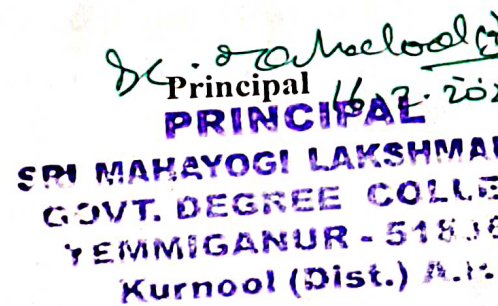 Principal
PRINCIPAL
SRI MAHAYOGI LAKSHMA
GOVT. DEGREE COLLE
YEMMIGANUR - 518
Kurnool (Dist.) A.P.